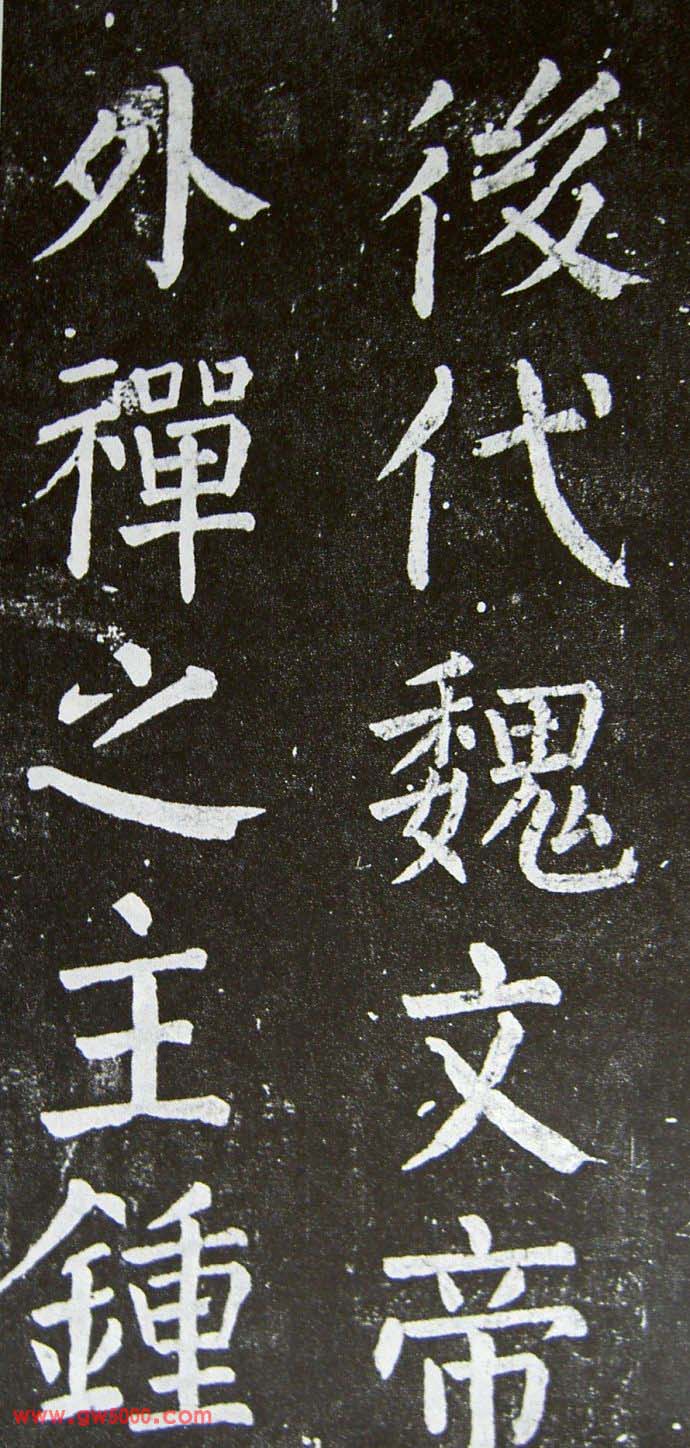 後代魏文帝
外禪之主鍾
www.gw5000.com